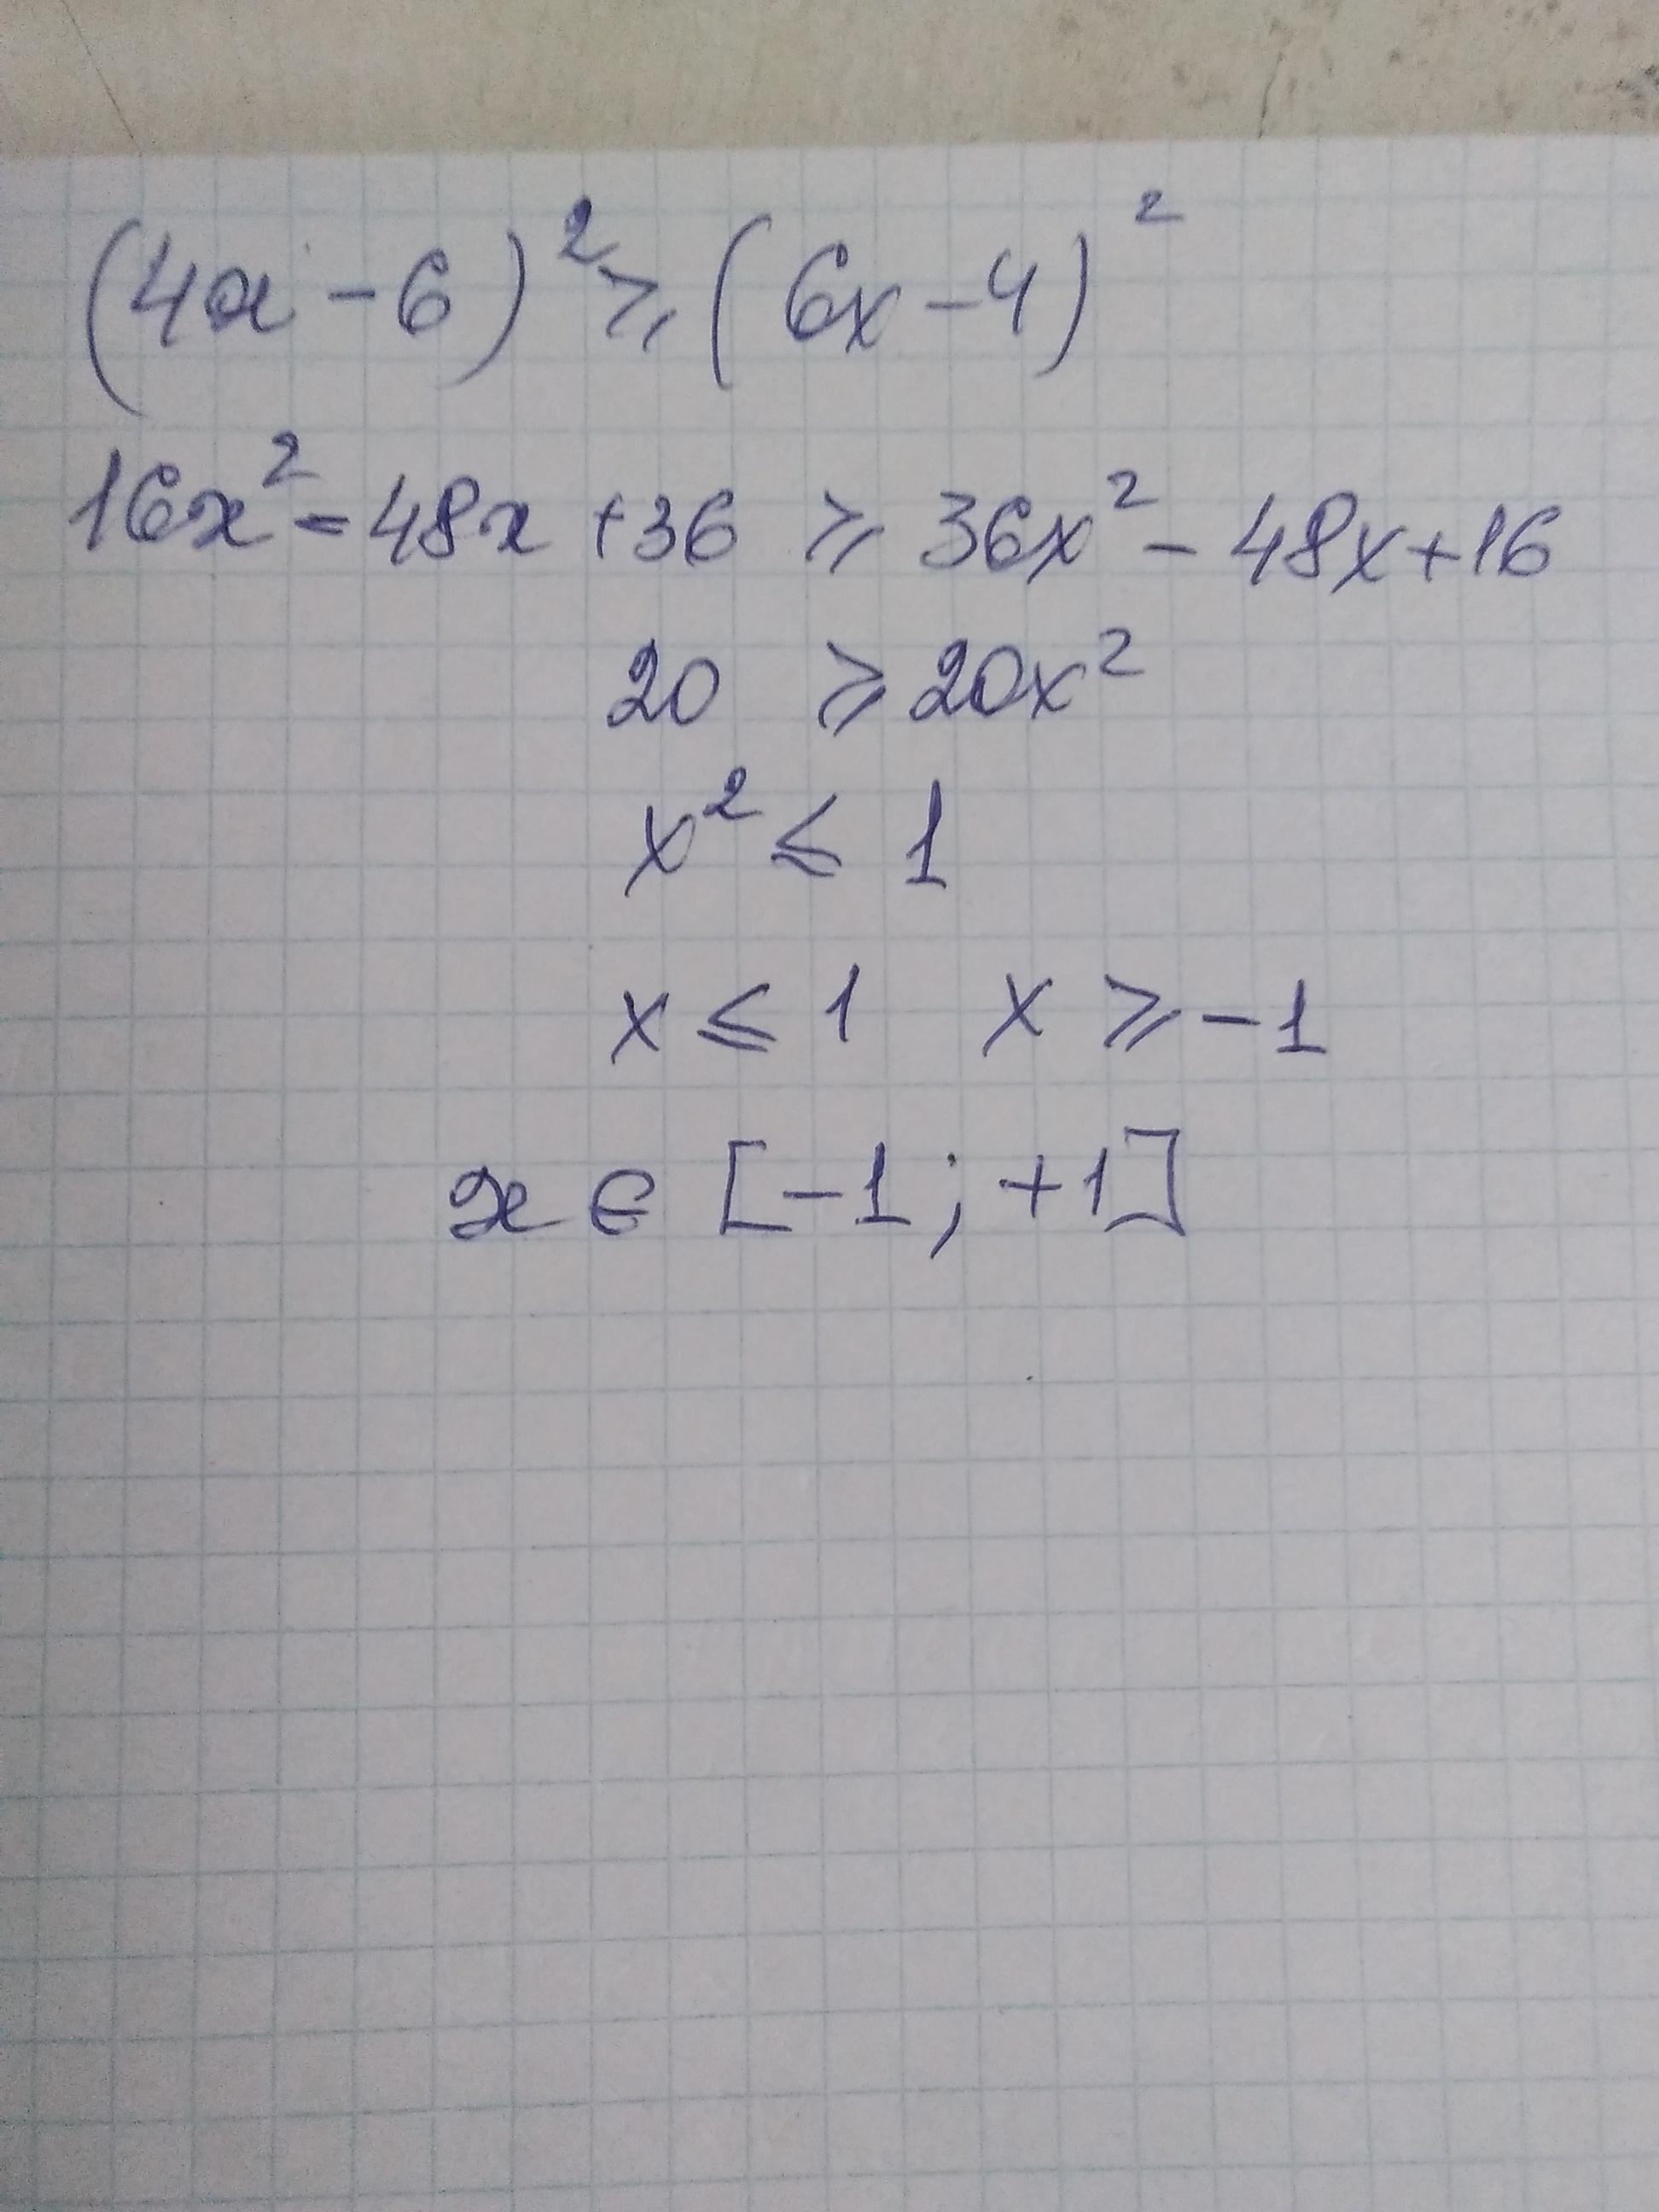 (4x-6)² ⩾ (6x-4)²
16x²-48x+36 ⩾ 36x²-48x+16
20 ⩾ 20x²
x² ⩽ 1
x ⩽ 1 x ⩾ -1
x ∈ [-1; +1]